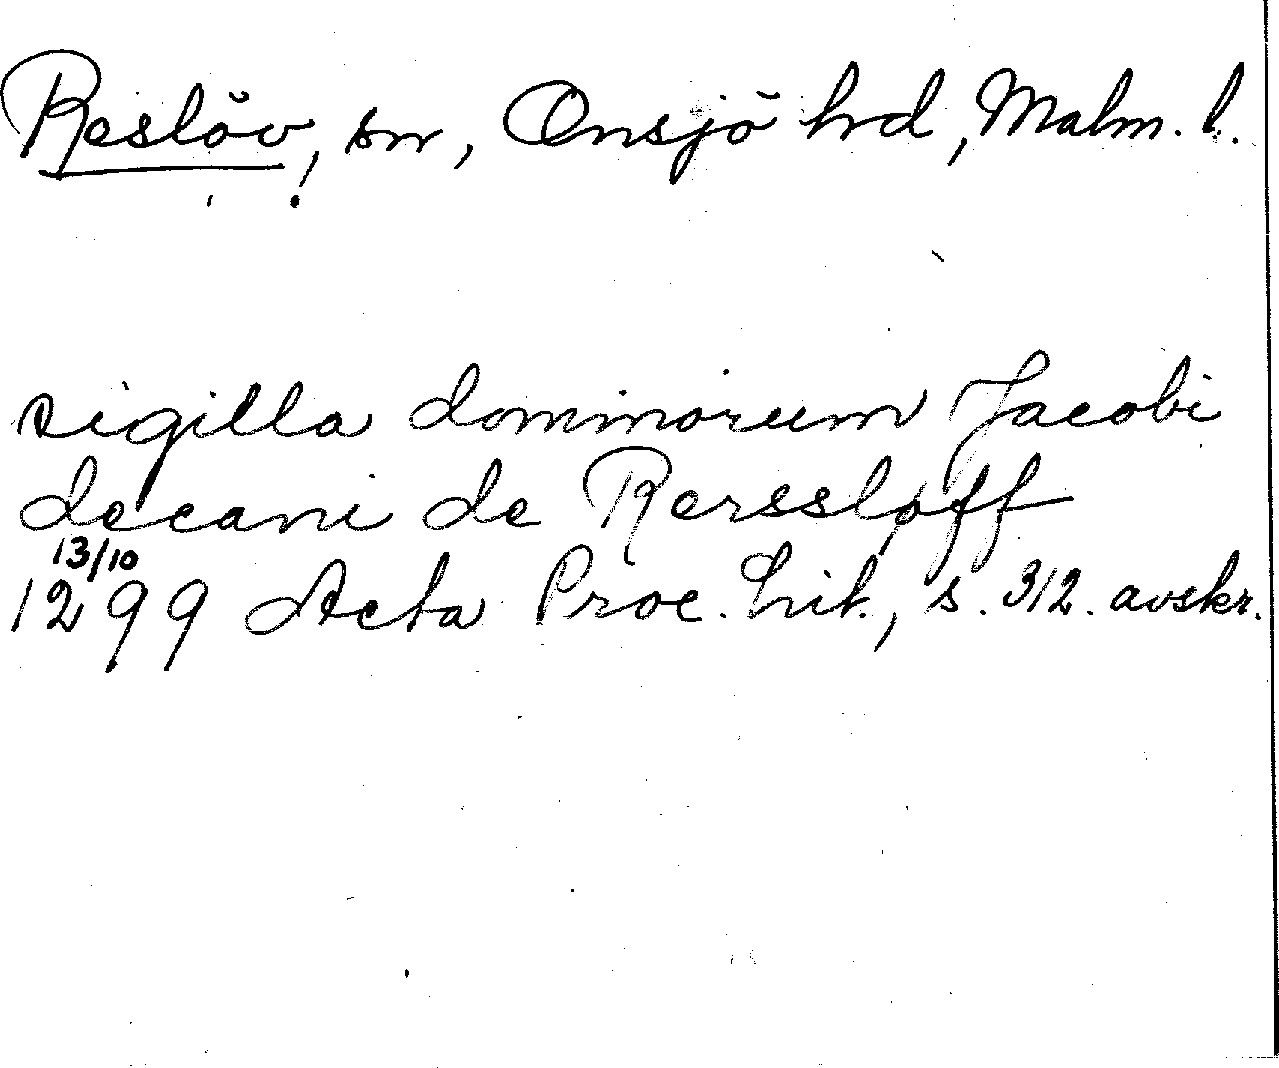 Reslöv, sn, Onsjö hrd, Malm. l.
sigilla dominorum Jacobi
decani de Rerssloff
13/10
1299 Acta Proc. Lit., s. 312. avskr.